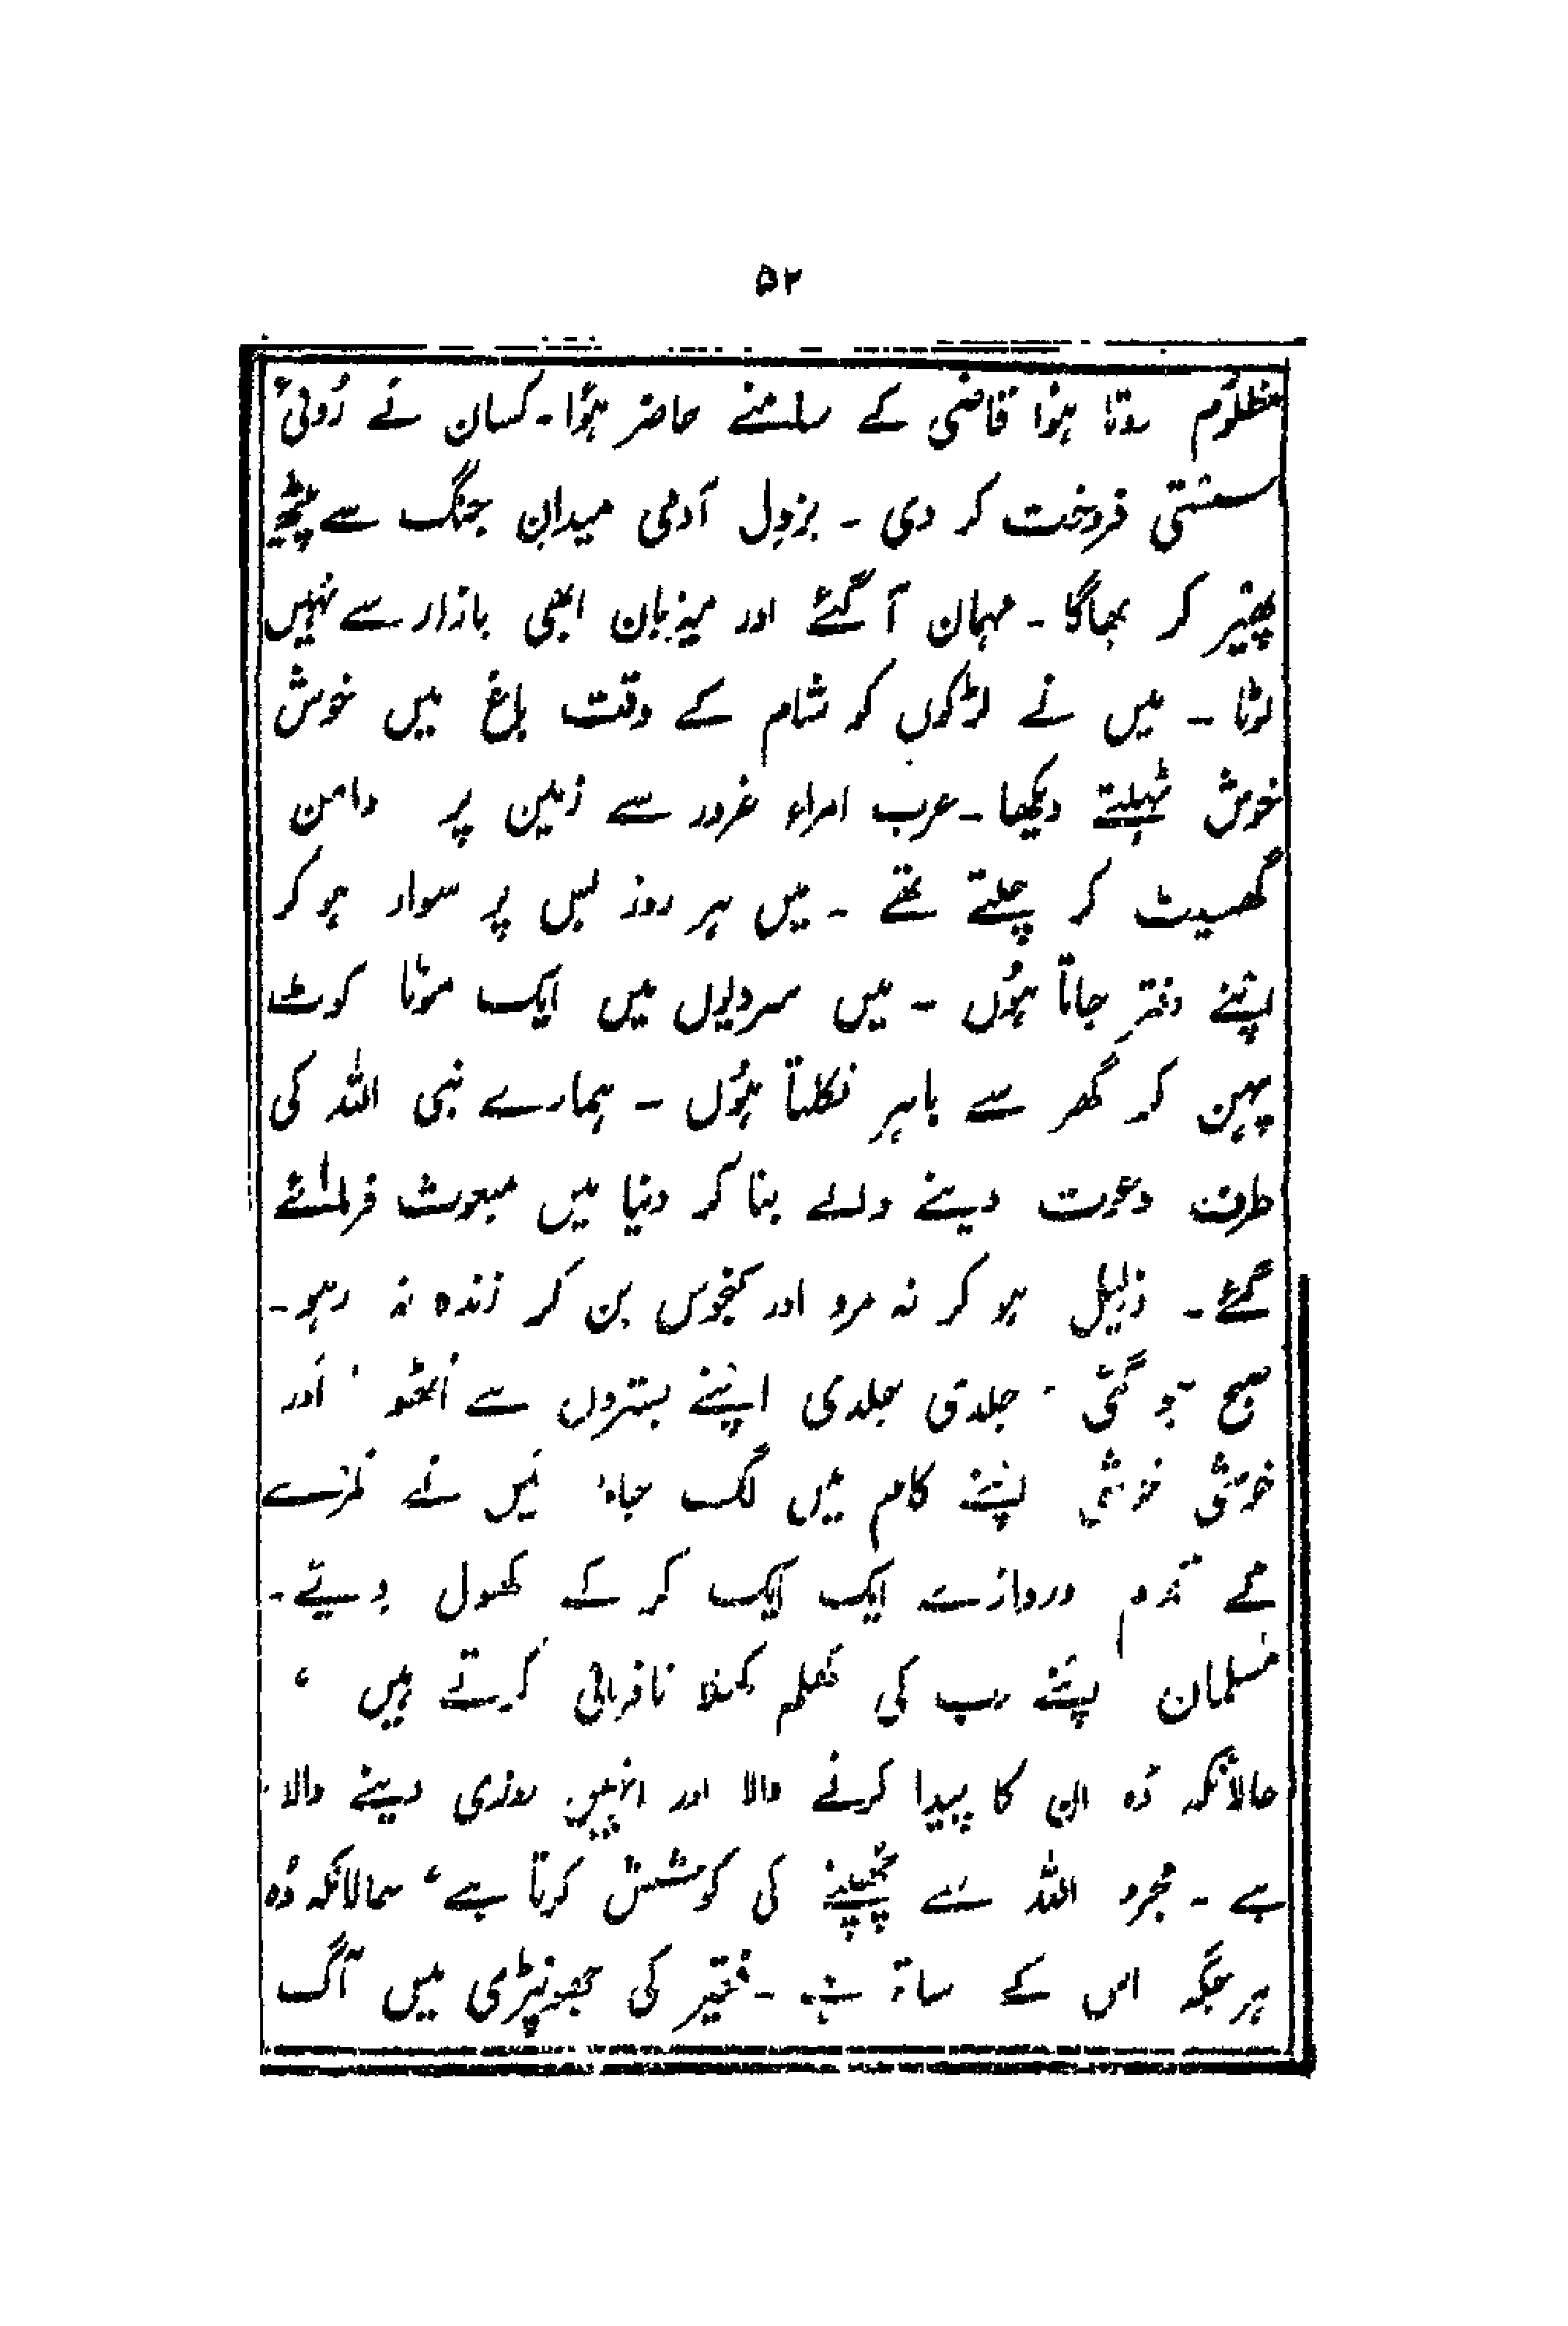 ۵۲
مظلُوم روتا ہؤا قاضی کے سامنے حاضر ہؤا۔ کسان نے رُوئی
سستی فروخت کر دی ۔ بزدِل آدمی میدانِ جنگ سے پیٹھ
پھیر کر بھاگا ۔ مہمان آ گئے اور میزبان ابھی بازار سے نہیں
لوٹا ۔ میں نے لڑکوں کو شام کے وقت باغ میں خوش
خوش ٹہلتے دیکھا ۔ عرب امراء غرور سے زمین پر دامن
گھسیٹ کر چلتے تھے ۔ میں ہر روز بس پر سوار ہو کر
اپنے دفتر جاتا ہُوں ۔ میں سردیوں میں ایک موٹا کوٹ
پہن کر گھر سے باہر نکلتا ہُوں ۔ ہمارے نبی اللہ کی
طرف دعوت دینے والے بنا کر دنیا میں مبعوث فرمائے
گئے ۔ ذلیل ہو کر نہ مرو اور کنجوس بن کر زندہ نہ رہو ۔
صبح ہو گئی ۔ جلدی جلدی اپنے بستروں سے اُٹھو ، اَور
خوشی خوشی اپنے کام میں لگ جاؤ مَیں نے کمرے
کے تمام دروازے ایک ایک کر کے کھول دیئے ۔
مُسلمان اپنے رب کی کھلم کھلا نافرمانی کرتے ہیں ،
حالانکہ وُہ ان کا پیدا کرنے والا اور انہیں روزی دینے والا
ہے ۔ مجرم اللہ سے چھپنے کی کوشش کرتا ہے ، حالانکہ وُہ
ہر جگہ اس کے ساتھ ہے ۔ فقیر کی جھونپڑی میں آگ